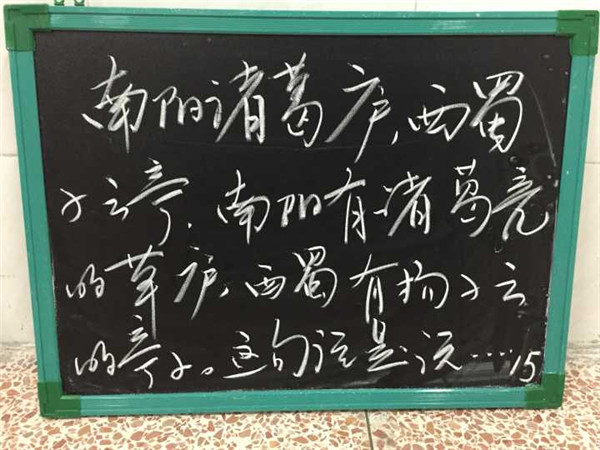 南阳诸葛庐,西蜀
子云亭.南阳有诸葛亮
的草庐,西蜀有扬子云
的亭子。这句话是说……15